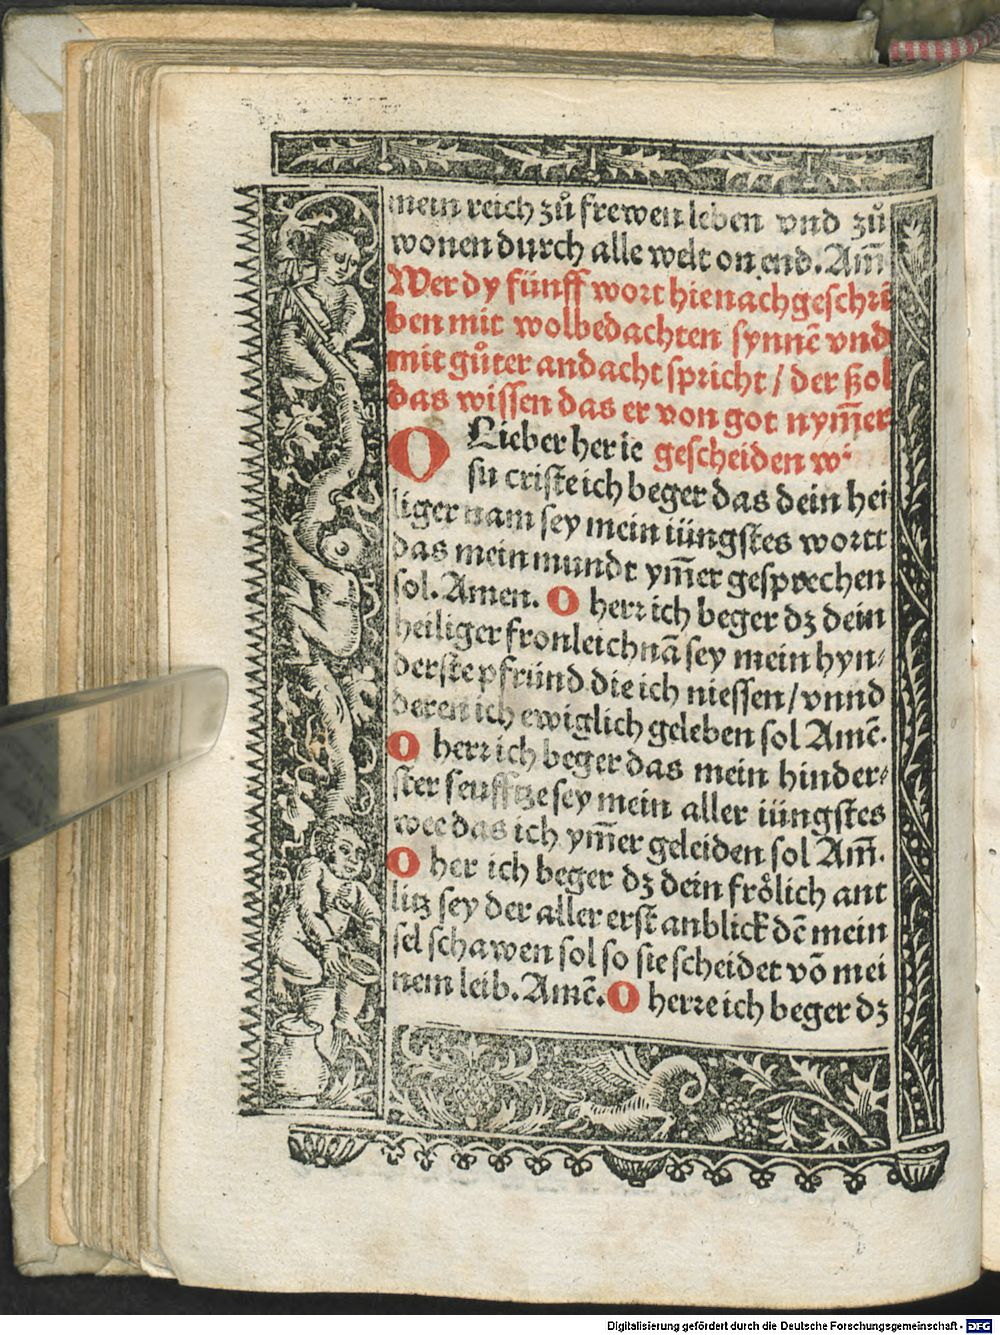 mein reich zů frewen leben vnd zů
wonen durch alle welt on end. Am̅
Wer dy fünff wort hienach geschri
ben mit wolbedachten synnē vnd
mit gůter andacht spricht / der ßol
das wissen das er von got nym̅er
O Lieber her ie gescheiden w
su criste ich beger das dein hei
liger nam sey mein iüngstes wortt
das mein mundt ym̅er gesprechen
sol. Amen. O herr ich beger dz dein
heiliger fronleichnā sey mein hyn⸗
derste pfründ die ich niessen / vnnd
deren ich ewiglich geleben sol Amē.
O herr ich beger das mein hinder⸗
ster seufftze sey mein aller iüngstes
wee das ich ym̅er geleiden sol Am̅.
O her ich beger dz dein frölich ant
litz sey der aller erst anblick dē mein
sel schawen sol so sie scheidet vō mei
nem leib. Amē. O herre ich beger dz
Digitalisierung gefördert durch die Deutsche Forschungsgemeinschaft - DFG